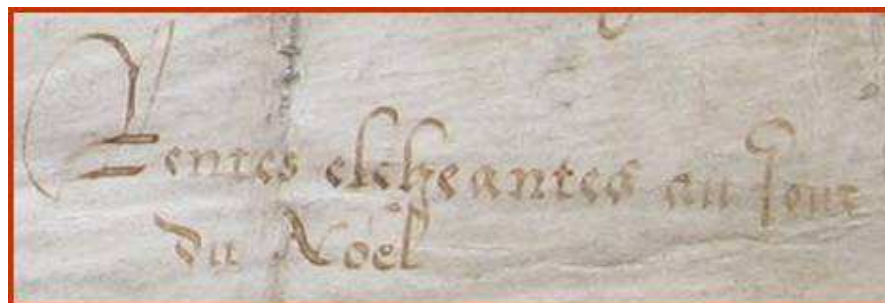 Rentes escheantes au Jour
du Noel